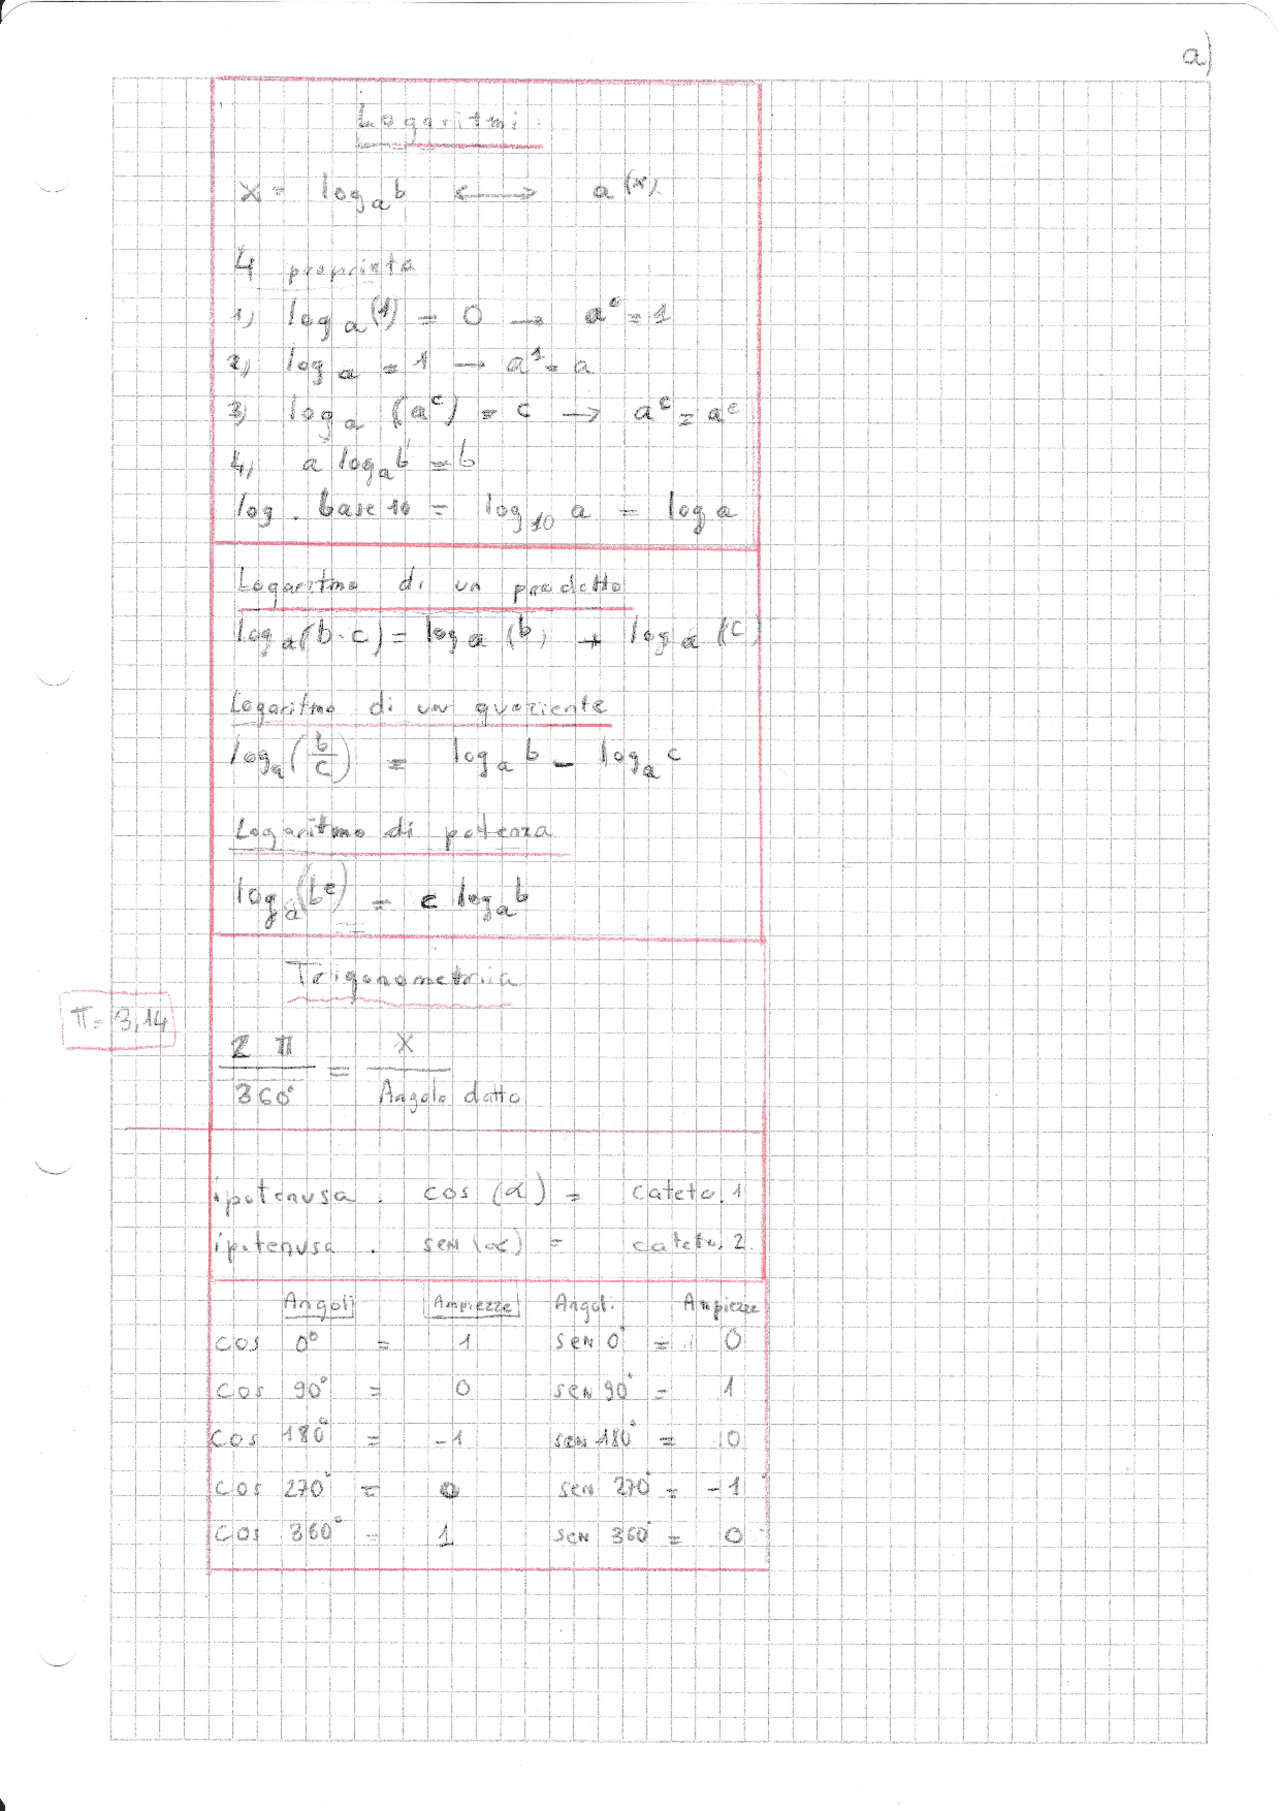 a)
Logaritmi
x = log_a b ⟷ a^(x)
4 proprietà
1) log_a (1) = 0 → a^0 = 1
2) log_a = 1 → a^1 = a
3) log_a (a^c) = c → a^c = a^c
4) a log_a b = b
log. base 10 = log_10 a = log a
Logaritmo di un prodotto
log_a (b·c) = log_a (b) + log_a (c)
Logaritmo di un quoziente
log_a (b/c) = log_a b - log_a c
Logaritmo di potenza
log_a (b^c) = c log_a b
Trigonometriia
π = 3,14
2 π / 360° = x / Angolo datto
ipotenusa . cos (α) = cateto. 1
ipotenusa . sen (α) = cateto. 2
Angoli Ampiezze Angoli Ampiezze
cos 0° = 1 sen 0° = 0
cos 90° = 0 sen 90° = 1
cos 180° = -1 sen 180° = 0
cos 270° = 0 sen 270° = -1
cos 360° = 1 sen 360° = 0